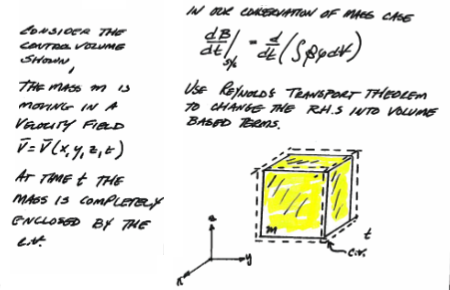 CONSIDER THE
CONTROL VOLUME
SHOWN,
THE MASS m IS
MOVING IN A
VELOCITY FIELD
V̄ = V̄(x, y, z, t)
AT TIME t THE
MASS IS COMPLETELY
ENCLOSED BY THE
C.V.
IN OUR CONSERVATION OF MASS CASE
dB/dt)sys = d/dt(∫βρdV)
USE REYNOLDS TRANSPORT THEOREM
TO CHANGE THE R.H.S INTO VOLUME
BASED TERMS.
m
t
C.V.
z
y
x